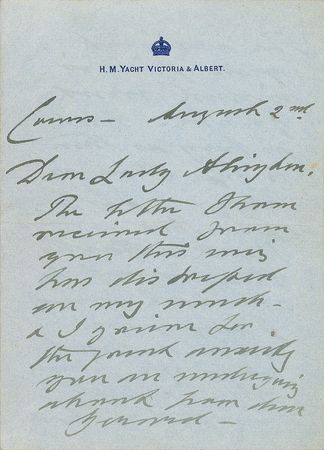 H. M. YACHT VICTORIA & ALBERT.
Cowes — August 2nd
Dear Lady Abingdon,
The letter I have
received from
you this
has distressed
me very much —
& I grieve for
the great anxiety
you are undergoing
about
Gerard —